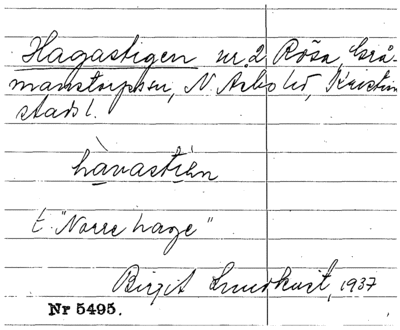 Hagastigen nr. 2 Röša, Grå-
manstorpssn, N. Åsbo hd, Kristian
stads l.
hàvastìen
t. "Norre hage"
Birgit Lundkvist, 1937
Nr 5495.